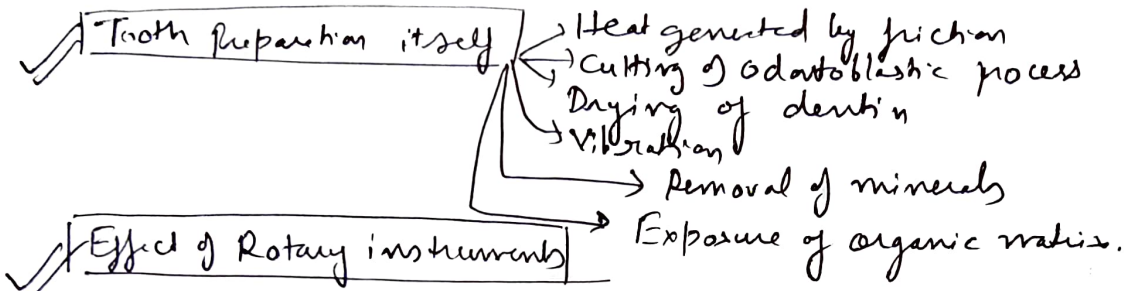 Tooth Preparation itself
Heat generated by friction
Cutting of odontoblastic process
Drying of dentin
Vibration
Removal of minerals
Exposure of organic matrix.
Effect of Rotary instruments